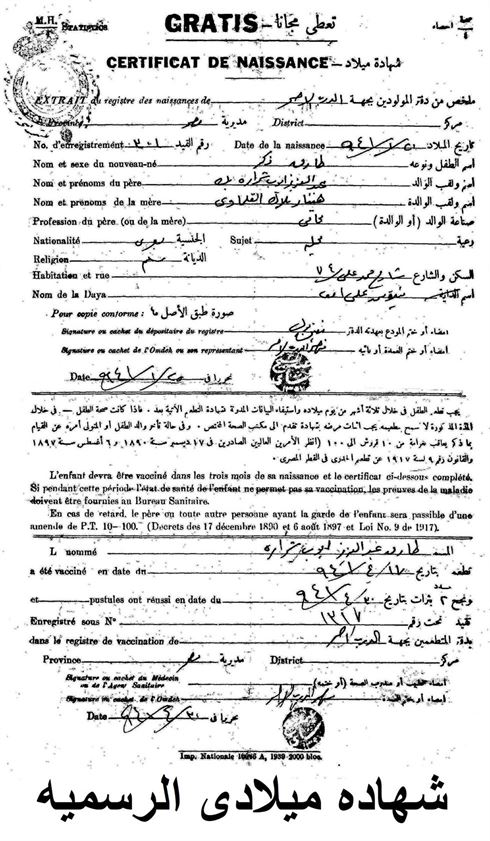 M.H. STATISTICS
GRATIS - تعطى مجانا
صحة ٤ احصاء
CERTIFICAT DE NAISSANCE - شهادة ميلاد
EXTRAIT du registre des naissances de الدرب الأحمر ملخص من دفتر المواليدين بجهة
Province مصر مديرية District مركز
No. d'enregistrement ٣٠١ رقم القيد Date de la naissance تاريخ الميلاد
Nom et sexe du nouveau-né طارق ذكر اسم الطفل ونوعه
Nom et prénoms du père عبد العزيز اسم ولقب الوالد
Nom et prenoms de la mère اسم ولقب الوالدة
Profession du père (ou de la mère) محامي صناعة الوالد (أو الوالدة)
Nationalité مصرى الجنسية Sujet محلية رعية
Religion مسلم الديانة
Habitation et rue شارع محمد على ٧٤ السكن والشارع
Nom de la Daya اسم القابلة
Pour copie conforme : صورة طبق الأصل
Signature ou cachet du dépositaire du registre امضاء أو ختم المودع بعهدته الدفتر
Signature ou cachet de l'Omdeh ou son représentant امضاء أو ختم العمدة أو نائبه
Date تحريرا فى
يجب تطعيم الطفل فى خلال ثلاثة أشهر من يوم ميلاده واستيفاء البيانات المدونة بشهادة التطعيم الآتية بعد . فاذا كانت صحة الطفل — فى خلال
المدة المذكورة لا تسمح بتطعيمه يجب اثبات مرضه بشهادة تقدم الى مكتب الصحة المختص . وفى حالة تأخر والد الطفل أو المتولى أمره عن القيام
بما ذكر يعاقب بغرامة من ١٠ قروش الى ١٠٠ (انظر الأمرين العاليين الصادرين فى ١٧ ديسمبر سنة ١٨٩٠ و ٦ أغسطس سنة ١٨٩٧
والقانون رقم ٩ لسنة ١٩١٧ عن تطعيم الجدرى فى القطر المصرى) .
L'enfant devra être vacciné dans les trois mois de sa naissance et le certificat ci-dessous complété.
Si pendant cette période l'état de santé de l'enfant ne permet pas sa vaccination, les preuves de la maladie
doivent être fournies au Bureau Sanitaire.
En cas de retard, le père ou toute autre personne ayant la garde de l'enfant sera passible d'une
amende de P.T. 10-100. (Decrets des 17 décembre 1890 et 6 août 1897 et Loi No. 9 de 1917).
L nommé طارق عبد العزيز المسمى
a été vacciné en date du ٩٤١/٤/١٧ تطعم بتاريخ
et pustules ont réussi en date du ٩٤١/٤/٣٠ ونجح ٢ بثرات بتاريخ
Enregistré sous N° ١٣٢٧ تقيد تحت رقم
dans le registre de vaccination de الدرب الأحمر بدفتر المتطعمين بجهة
Province مصر مديرية District مركز
Signature ou cachet du Médecin
ou de l'Agent Sanitaire امضاء الطبيب أو مندوب الصحة (أو ختمه)
Signature ou cachet de l'Omdeh امضاء أو ختم العمدة
Date ٩٤١/٤/٣٠ تحريرا فى
Imp. Nationale 10286 A, 1939-2000 blocs.
شهاده ميلادى الرسميه